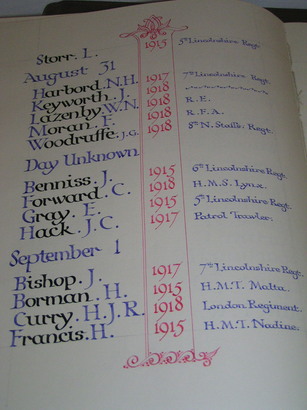 Storr. L. 1915 5th Lincolnshire Regt.
August 31
Harbord. N.H. 1917 7th Lincolnshire Regt.
Keyworth. J. 1918
Lazenby. W.N. 1918 R.E.
Moran. F. 1918 R.F.A.
Woodruffe. J.G. 1918 5th N. Staffs. Regt.
Day Unknown
Benniss. J. 1915 6th Lincolnshire Regt.
Forward. C. 1918 H.M.S. Lynx.
Gray. E. 1915 5th Lincolnshire Regt.
Hack. J.C. 1917 Patrol Trawler.
September 1
Bishop. J. 1917 7th Lincolnshire Regt.
Borman. H. 1915 H.M.T. Malta.
Curry. H.J.R. 1918 London Regiment.
Francis. H. 1915 H.M.T. Nadine.